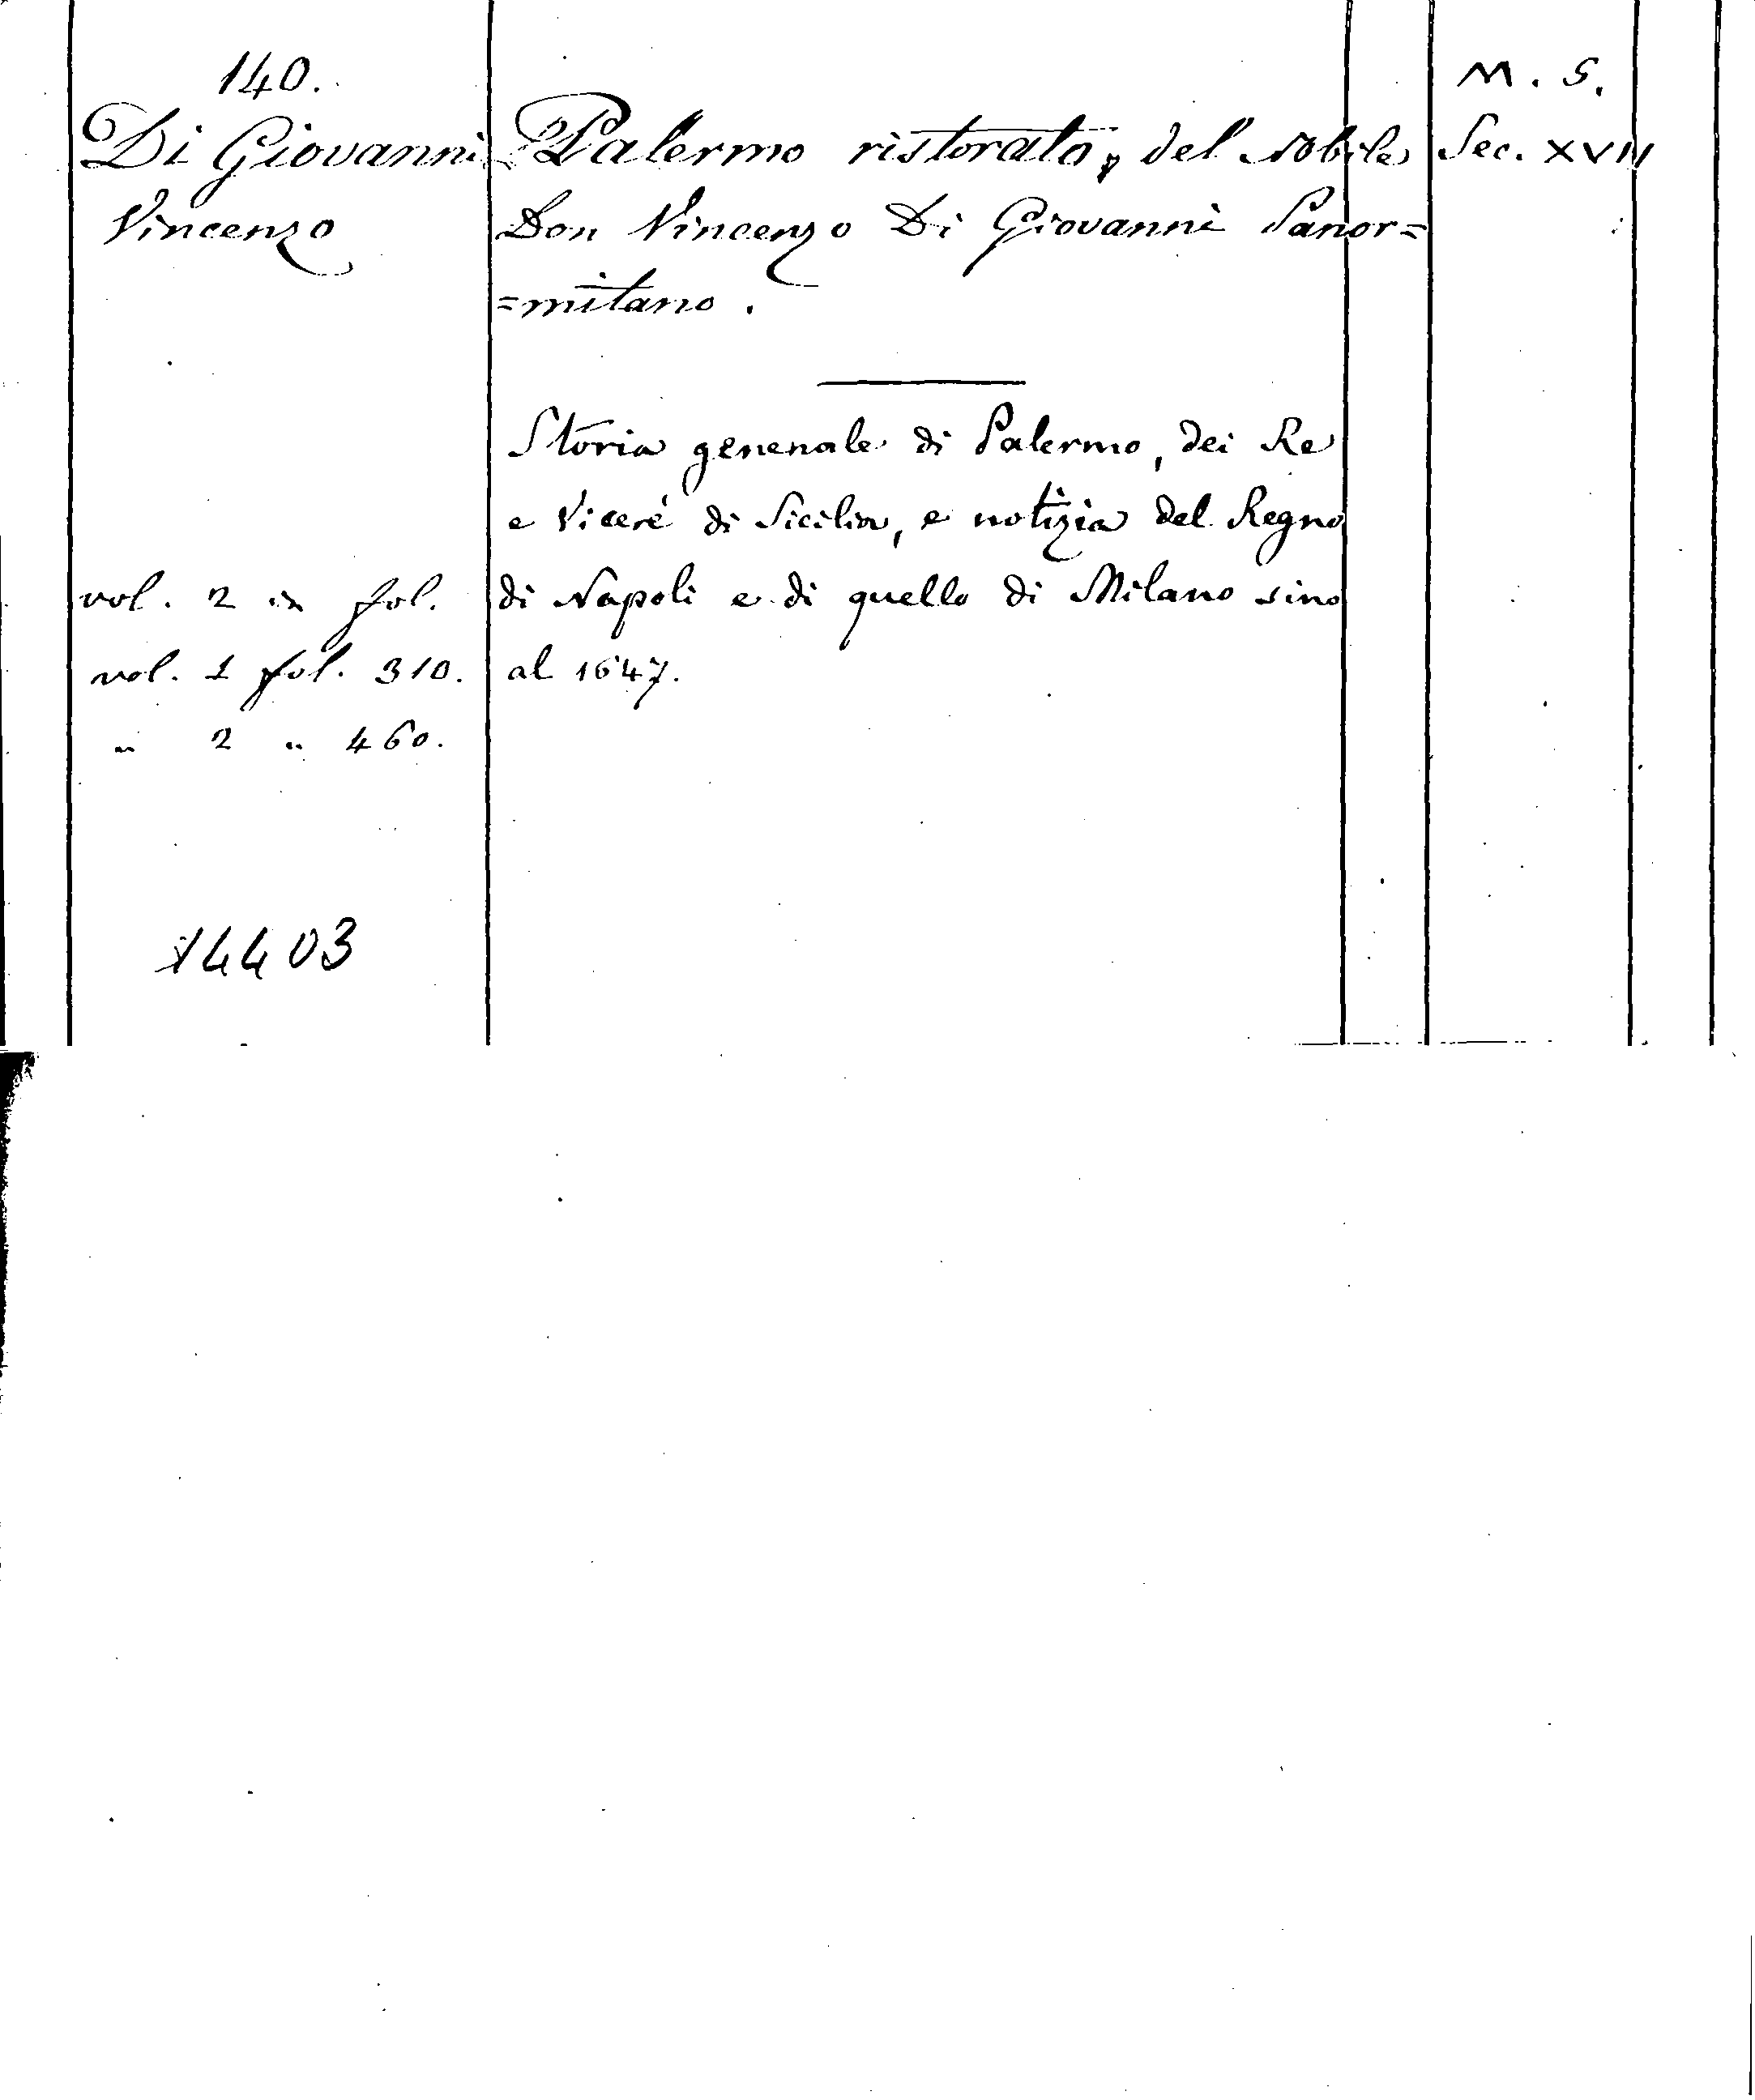 140.
Di Giovanni
Vincenzo
vol. 2 in fol.
vol. 1 fol. 310.
" 2 " 460.
14403
Palermo ristorato, del Nobile
Don Vincenzo Di Giovanni Panor=
=mitano.
Storia generale di Palermo, dei Re
e Viceré di Sicilia, e notizia del Regno
di Napoli e di quello di Milano sino
al 1647.
M. S.
Sec. XVII